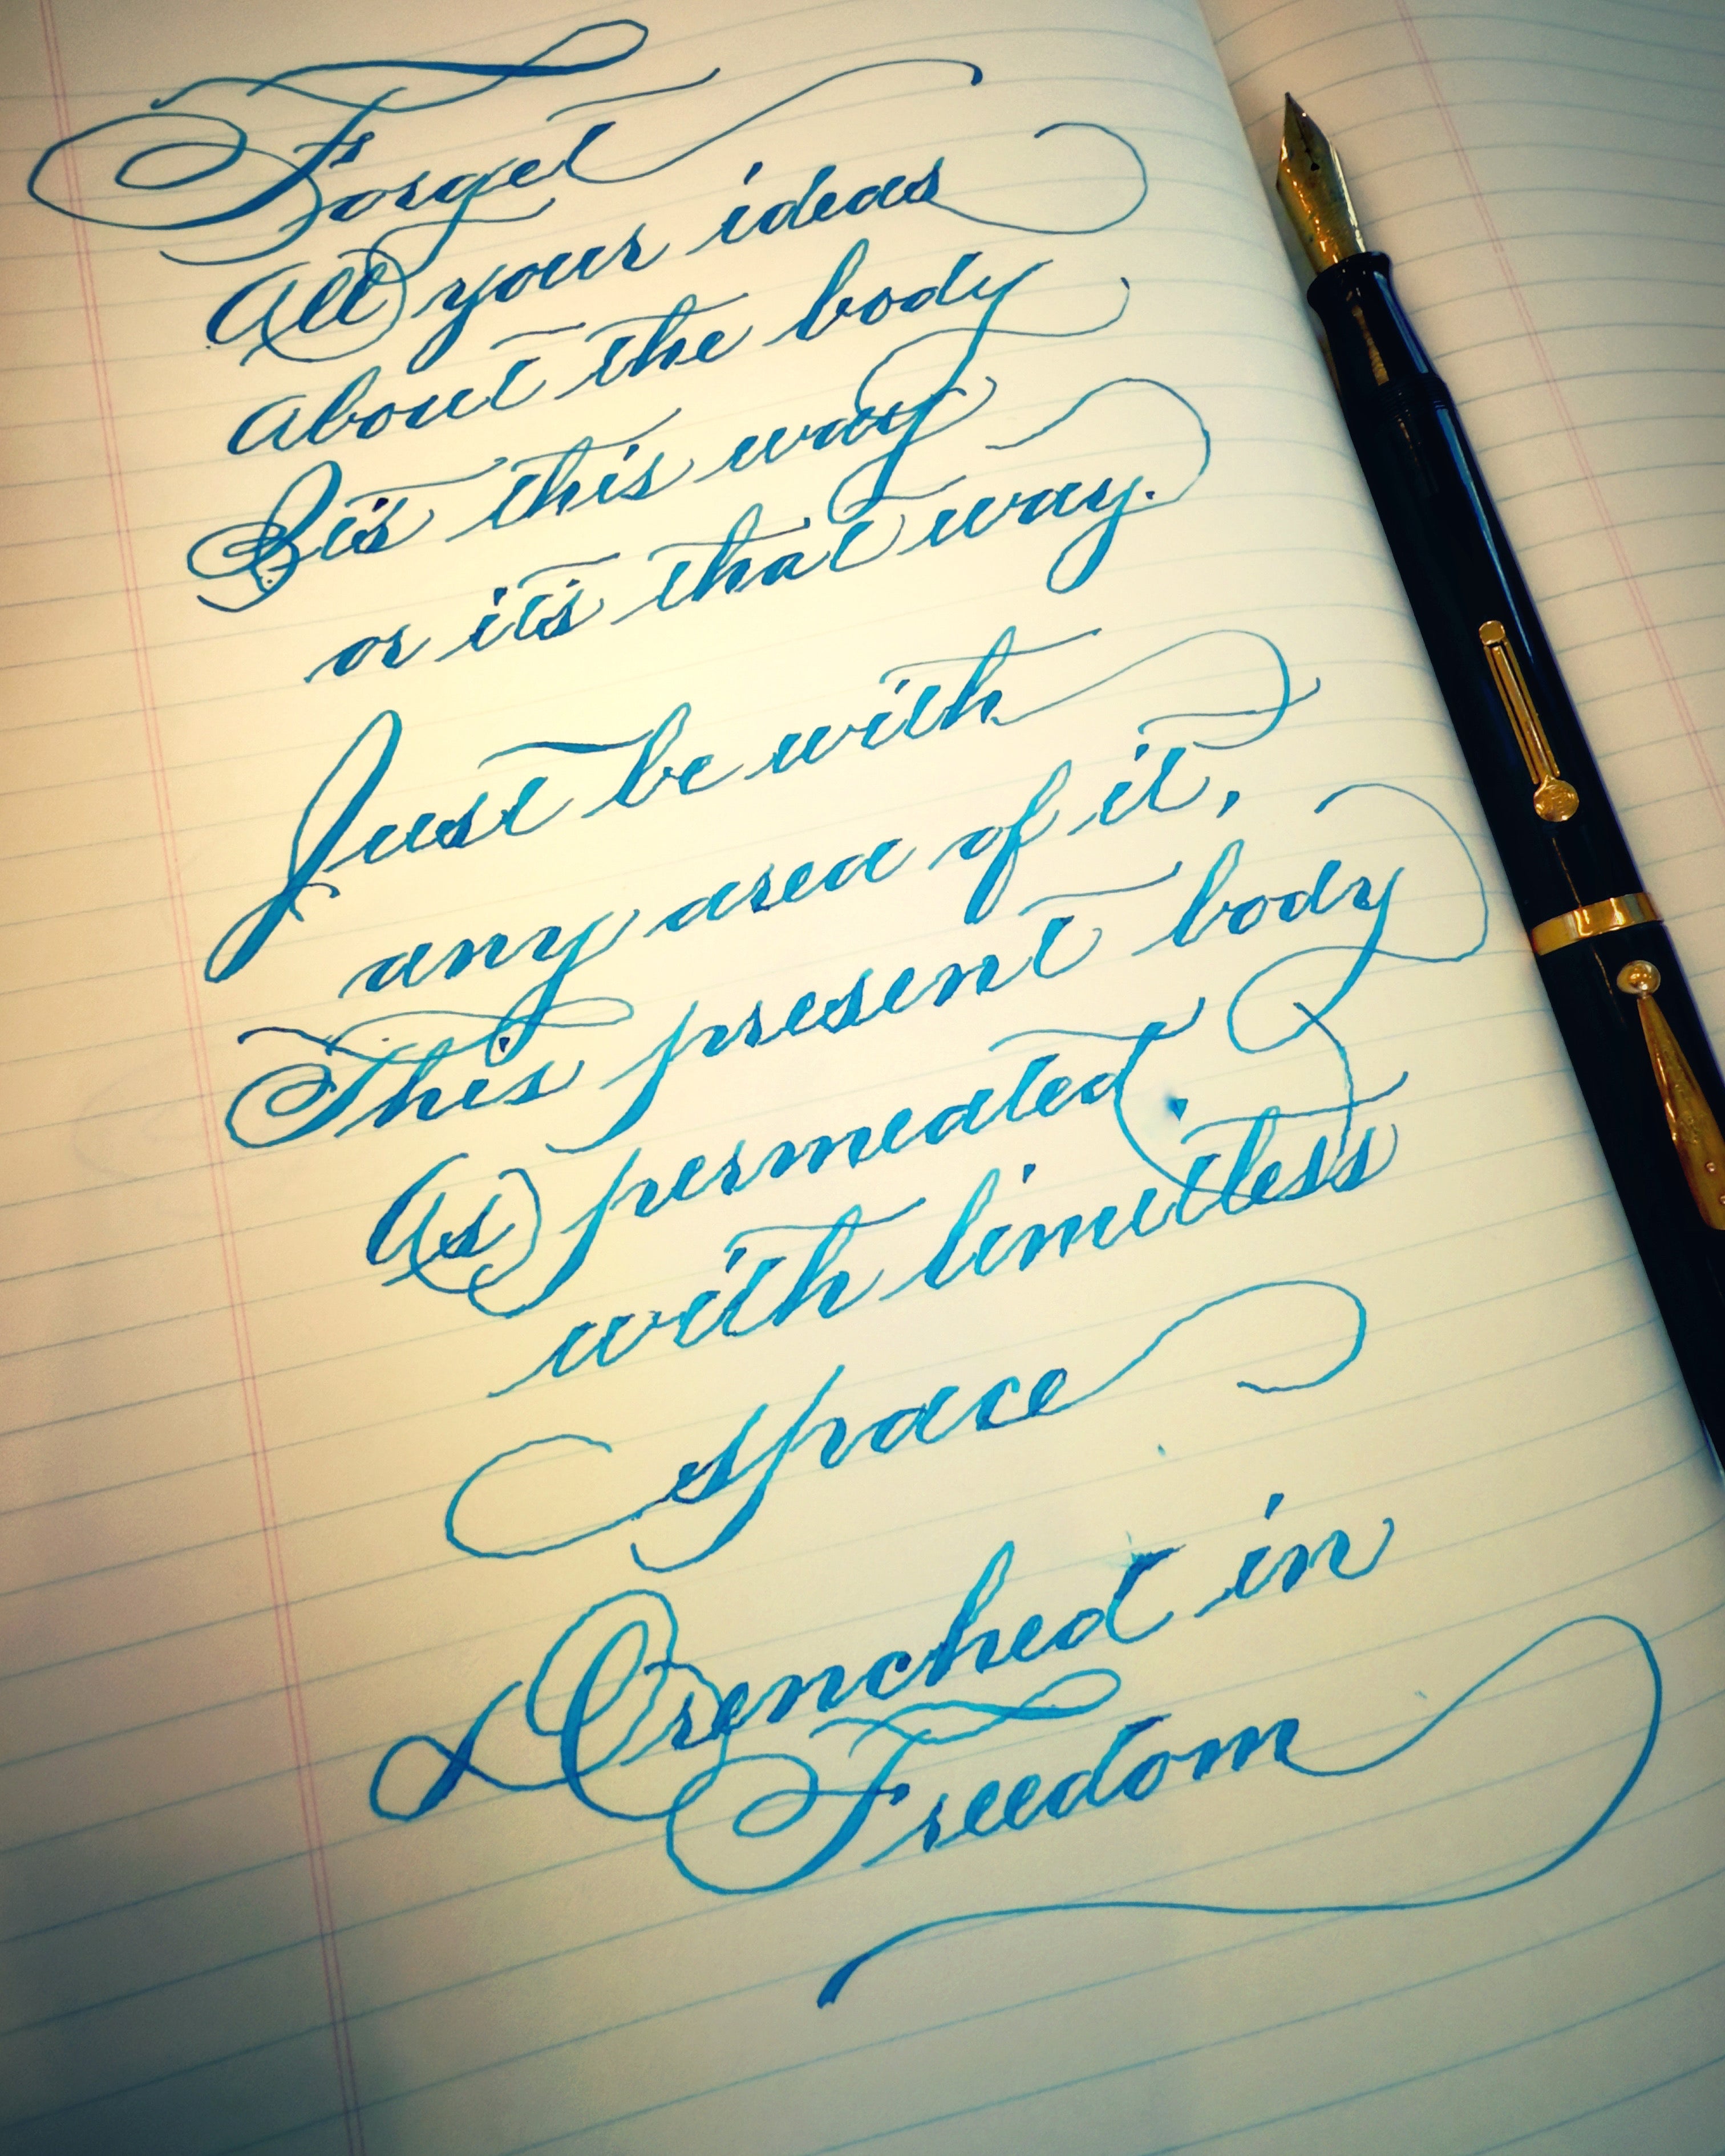 Forget
All your ideas
about the body
It's this way
or it's that way.
Just be with
any area of it,
This present body
As permeated
with limitless
space
Drenched in
Freedom